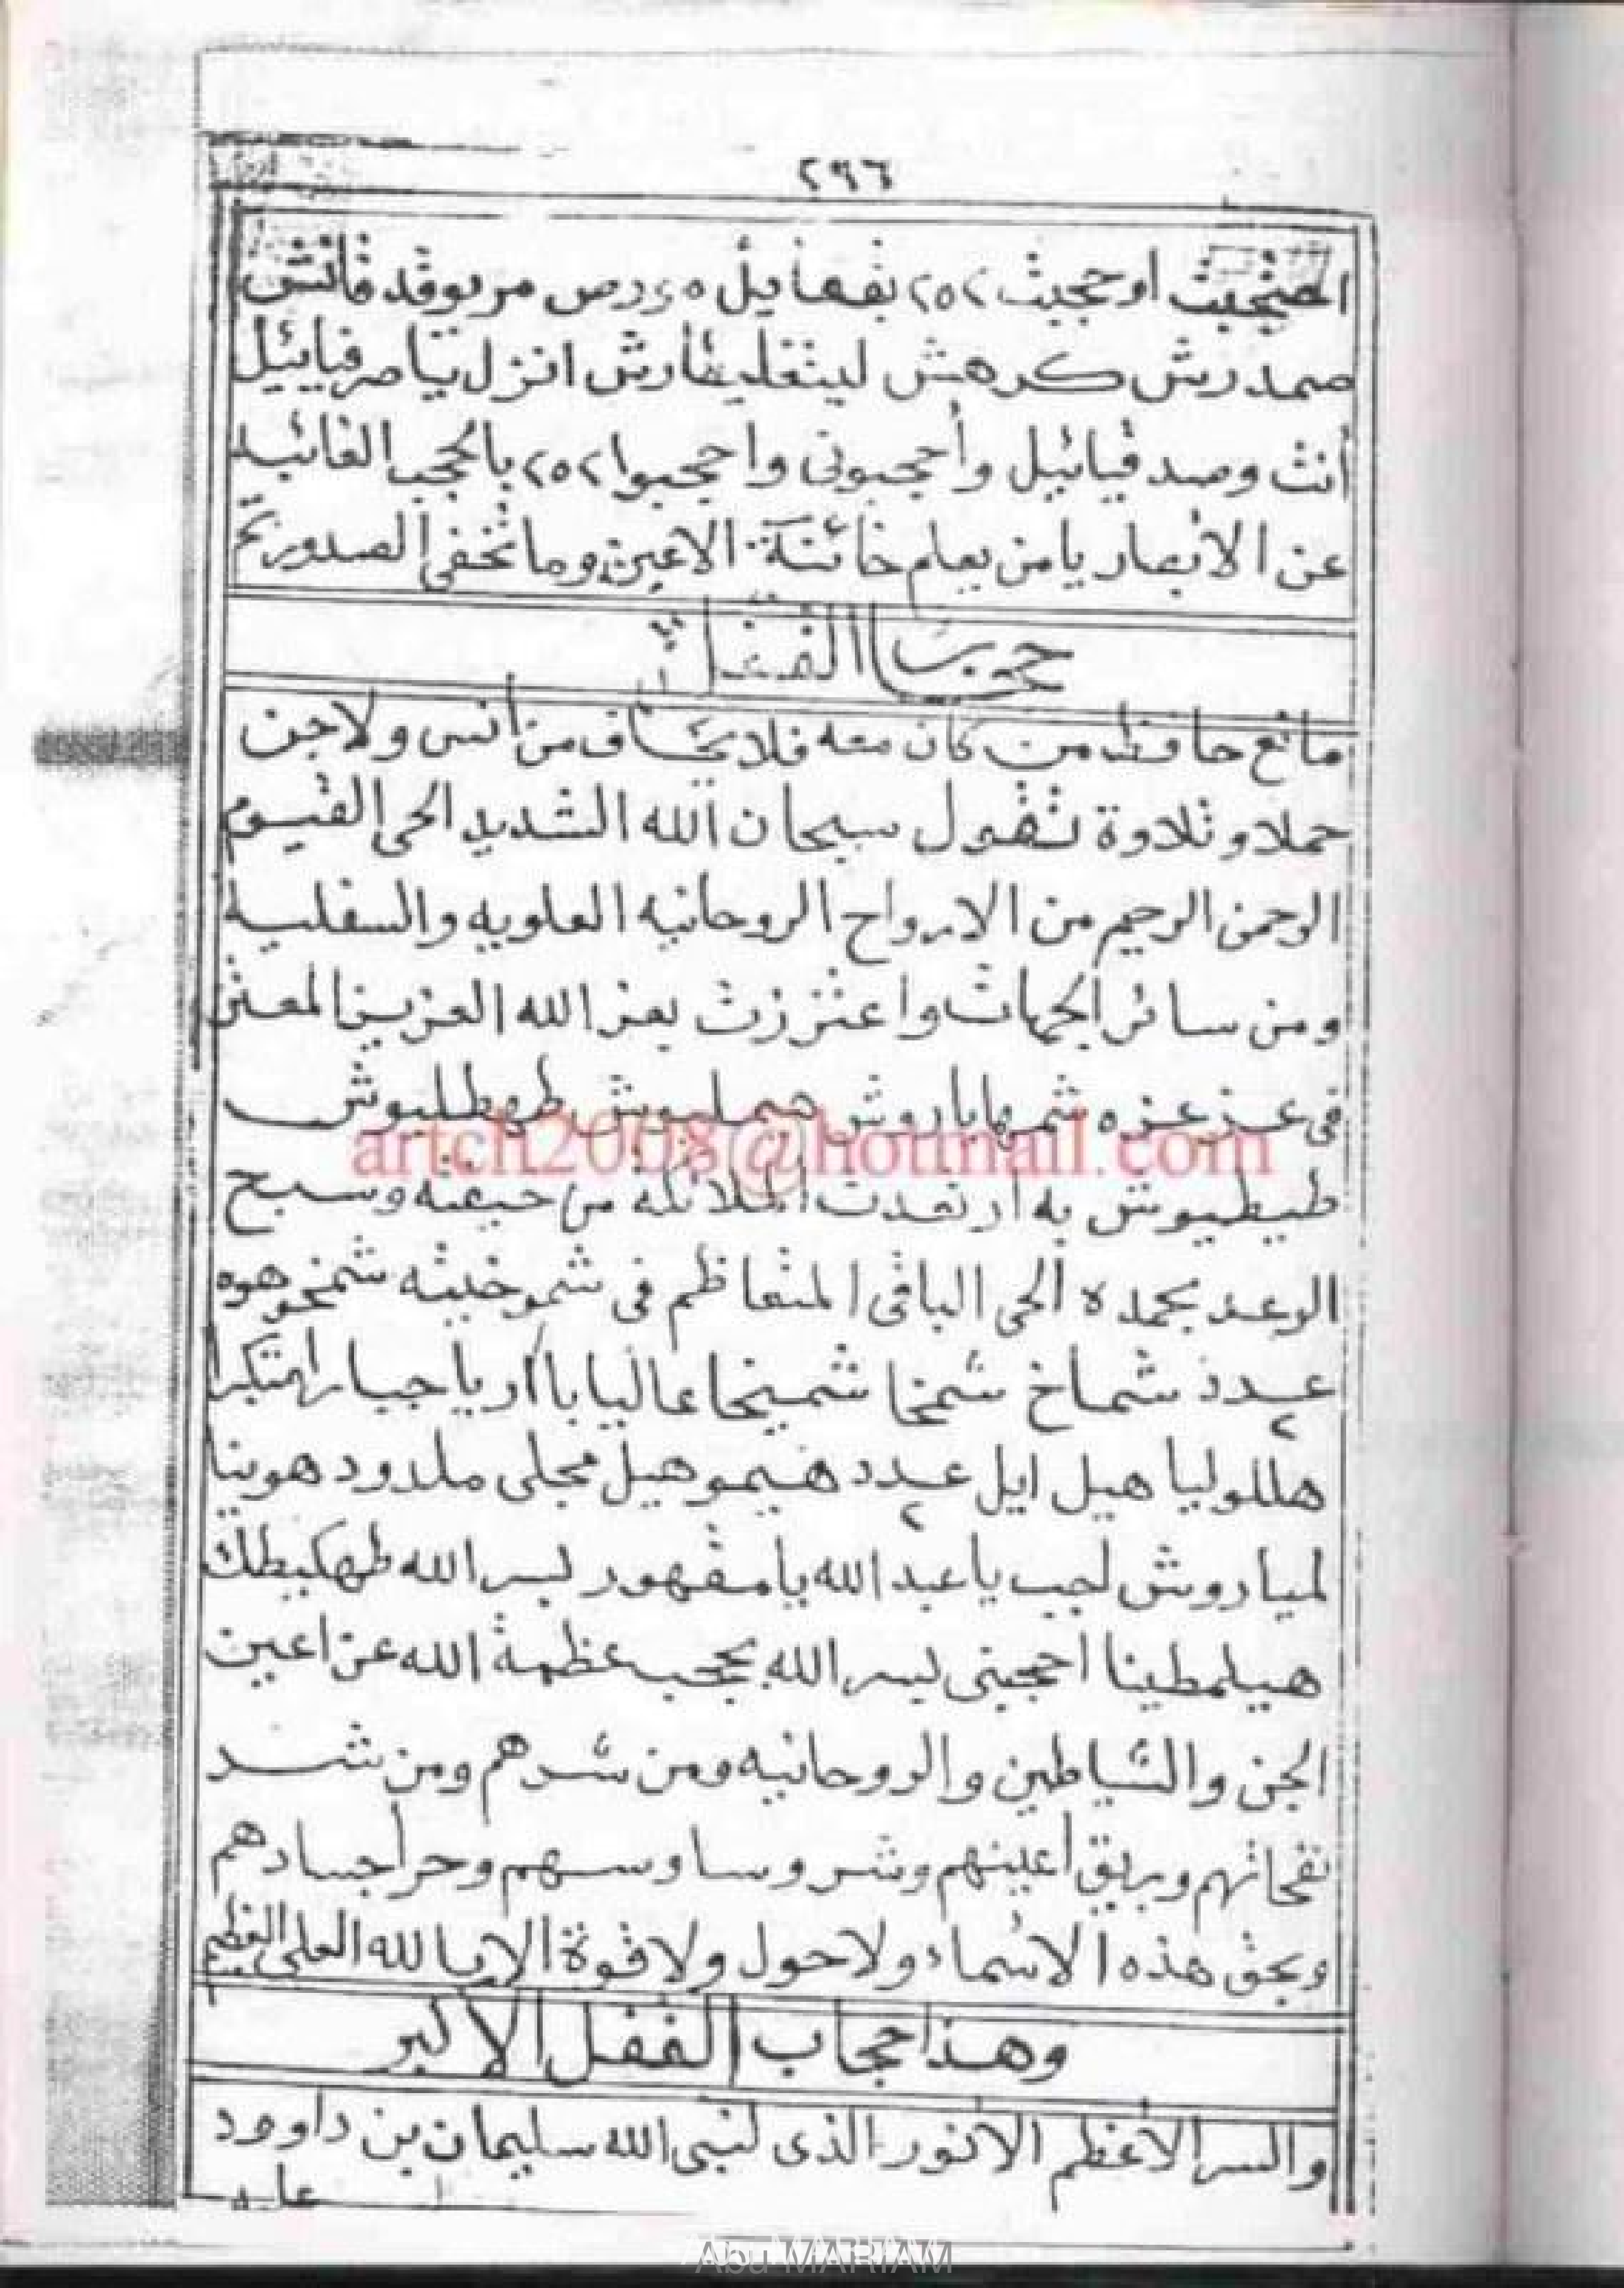 ٢٩٦
احتجبت ٢٥٢
صمدرش كرهش انزل يا صرفيائيل
أنت وصدقيائيل وأحجبونى واحجبوا ٢٥٢ بالحجب
عن الأبصار يا من يعلم خائنة الاعين وما تخفى الصدور تم
حجاب
مانع حافظ من كان معه فلا يخاف من انس ولا جن
حملا وتلاوة تقول سبحان الله الشديد الحى القيوم
الرحمن الرحيم من الارواح الروحانيه العلويه والسفليه
ومن سائر الجهات واعتززت بعز الله العزيز المعتز
فى عز عزه شمهاباروش هيمليوش طهطليوش
artch2008@hotmail.com
طيطيوش به ارتعدت الملائكة من خيفته وسبح
الرعد بحمده الحى الباقى المتعاظم فى
عدد ٢ شماخ شمخا شميخا عاليا
هللوليا هيل ايل عدد ٢ هيموهيل مجلى ملدود هوينا
لمياروش اجب يا عبد الله يا مقهور بسر الله طهكيطك
هيلمطينا احجبنى بسر الله بحجب عظمة الله عن اعين
الجن والشياطين والروحانيه ومن شرهم ومن شد
نفحاتهم وبريق أعينهم وشر وساوسهم وحر أجسادهم
وبحق هذه الاسماء ولا حول ولا قوة الا بالله العلى العظيم
وهذا حجاب القفل الاكبر
والسر الاعظم الانور الذى لنبى الله سليمان بن داوود
عليه
Abu MARIAM